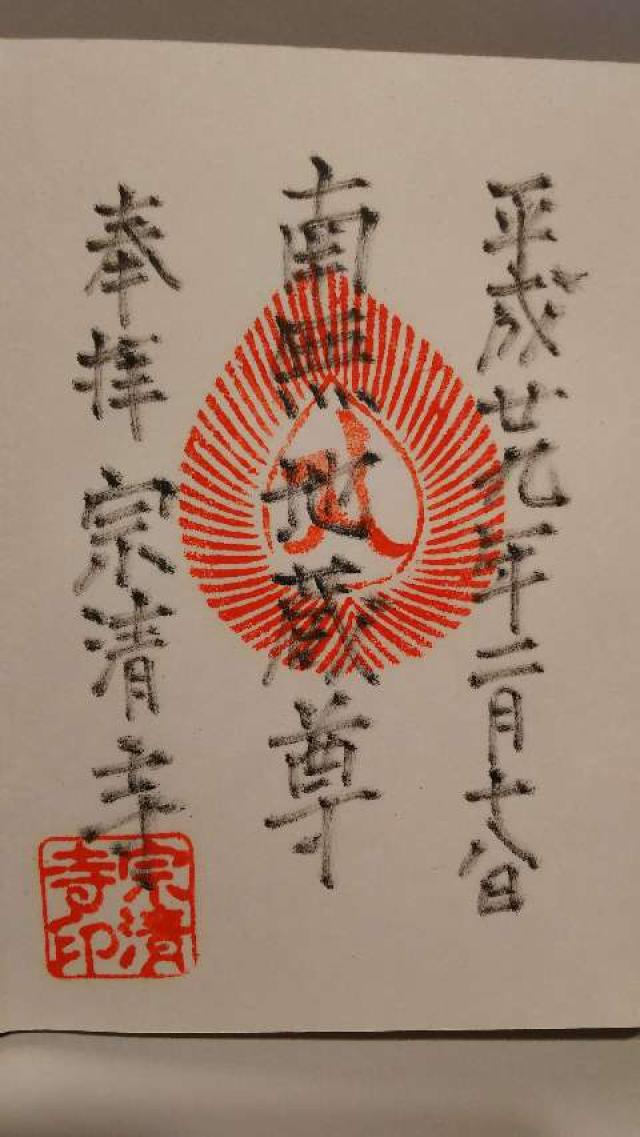 平成廿九年二月十八日
南無地蔵尊
奉拝 宗清寺
宗清
寺印